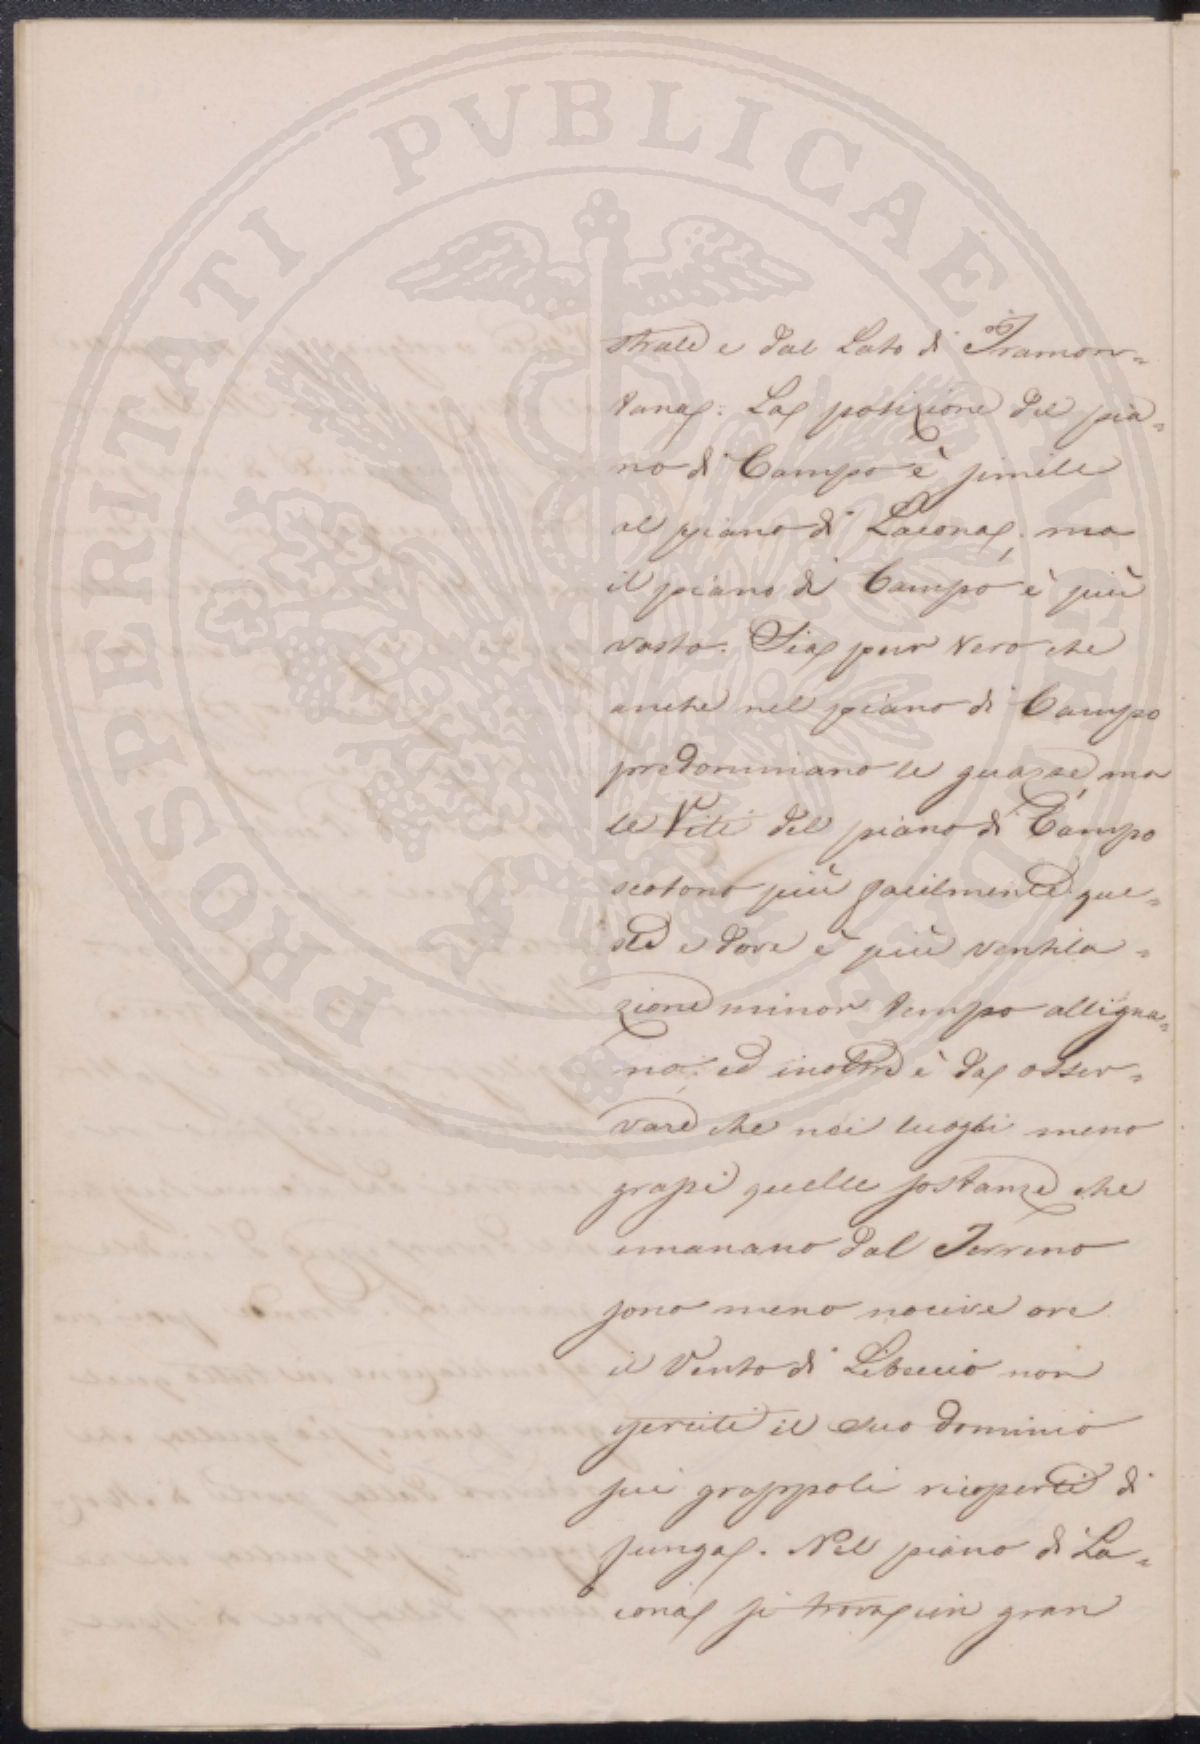 PROSPERITATI PVBLICAE AVGENDAE
strale e dal Lato di Tramon=
tana: La posizione del pia=
no di Campo è simile
al piano di Lacona, ma
il piano di Campo è più
vasto. Sia pur vero che
anche nel piano di Campo
predominano le guasse, ma
le Viti del piano di Campo
scotono più facilmente que=
ste e dove è più ventila=
zione minor tempo alligna=
no; ed inoltre è da osser=
vare che nei luoghi meno
grassi quelle sostanze che
emanano dal Terreno
sono meno nocive ove
il Vento di Libeccio non
eserciti il suo dominio
sui grappoli ricoperti di
funga. Nel piano di La=
cona si trova un gran